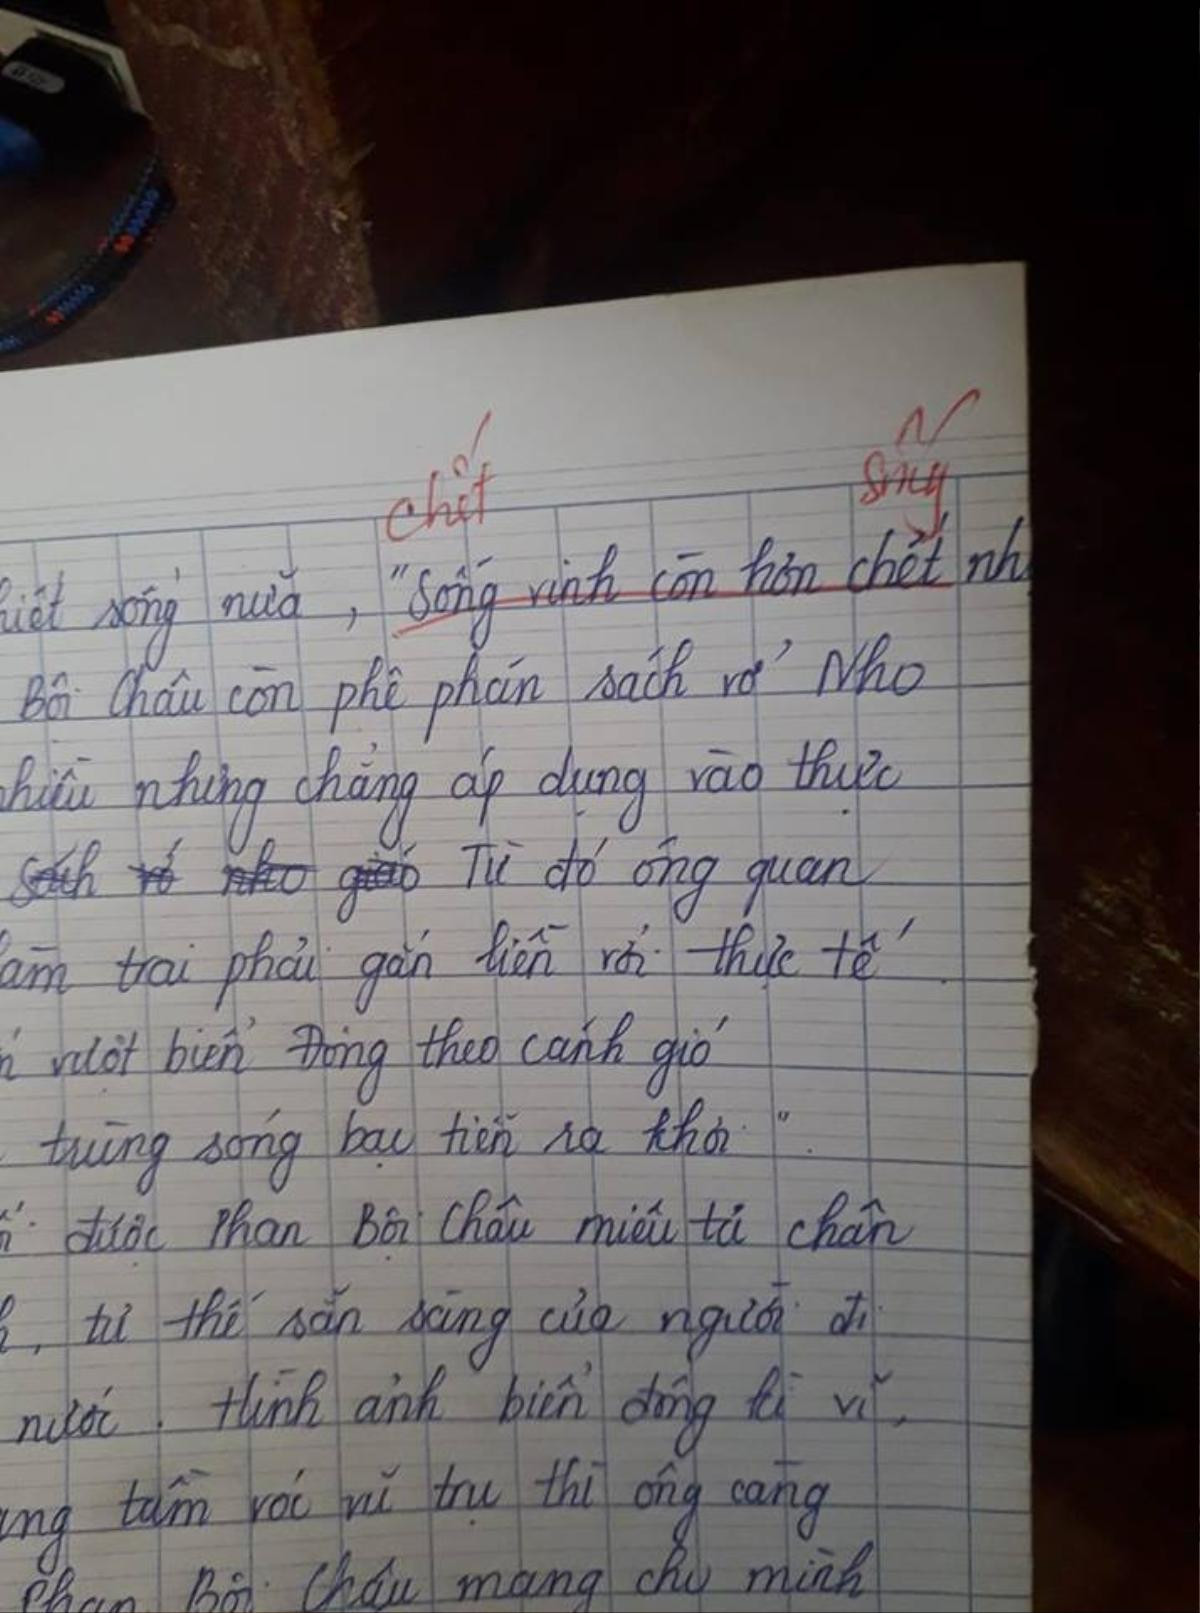 chết
sống
sống nữa, "Sống vinh còn hơn chết nh
Bội Châu còn phê phán sách vở Nho
nhưng chẳng áp dụng vào thực
sách vở nho giáo Từ đó ông quan
trai phải gắn liền với thực tế
vượt biển Đông theo cánh gió
trùng sóng bạc tiễn ra khơi".
được Phan Bội Châu miêu tả chân
, tư thế sẵn sàng của người đi
nước. Hình ảnh biển đông kì vĩ,
tầm vóc vũ trụ thì ông càng
Phan Bội Châu mang cho mình